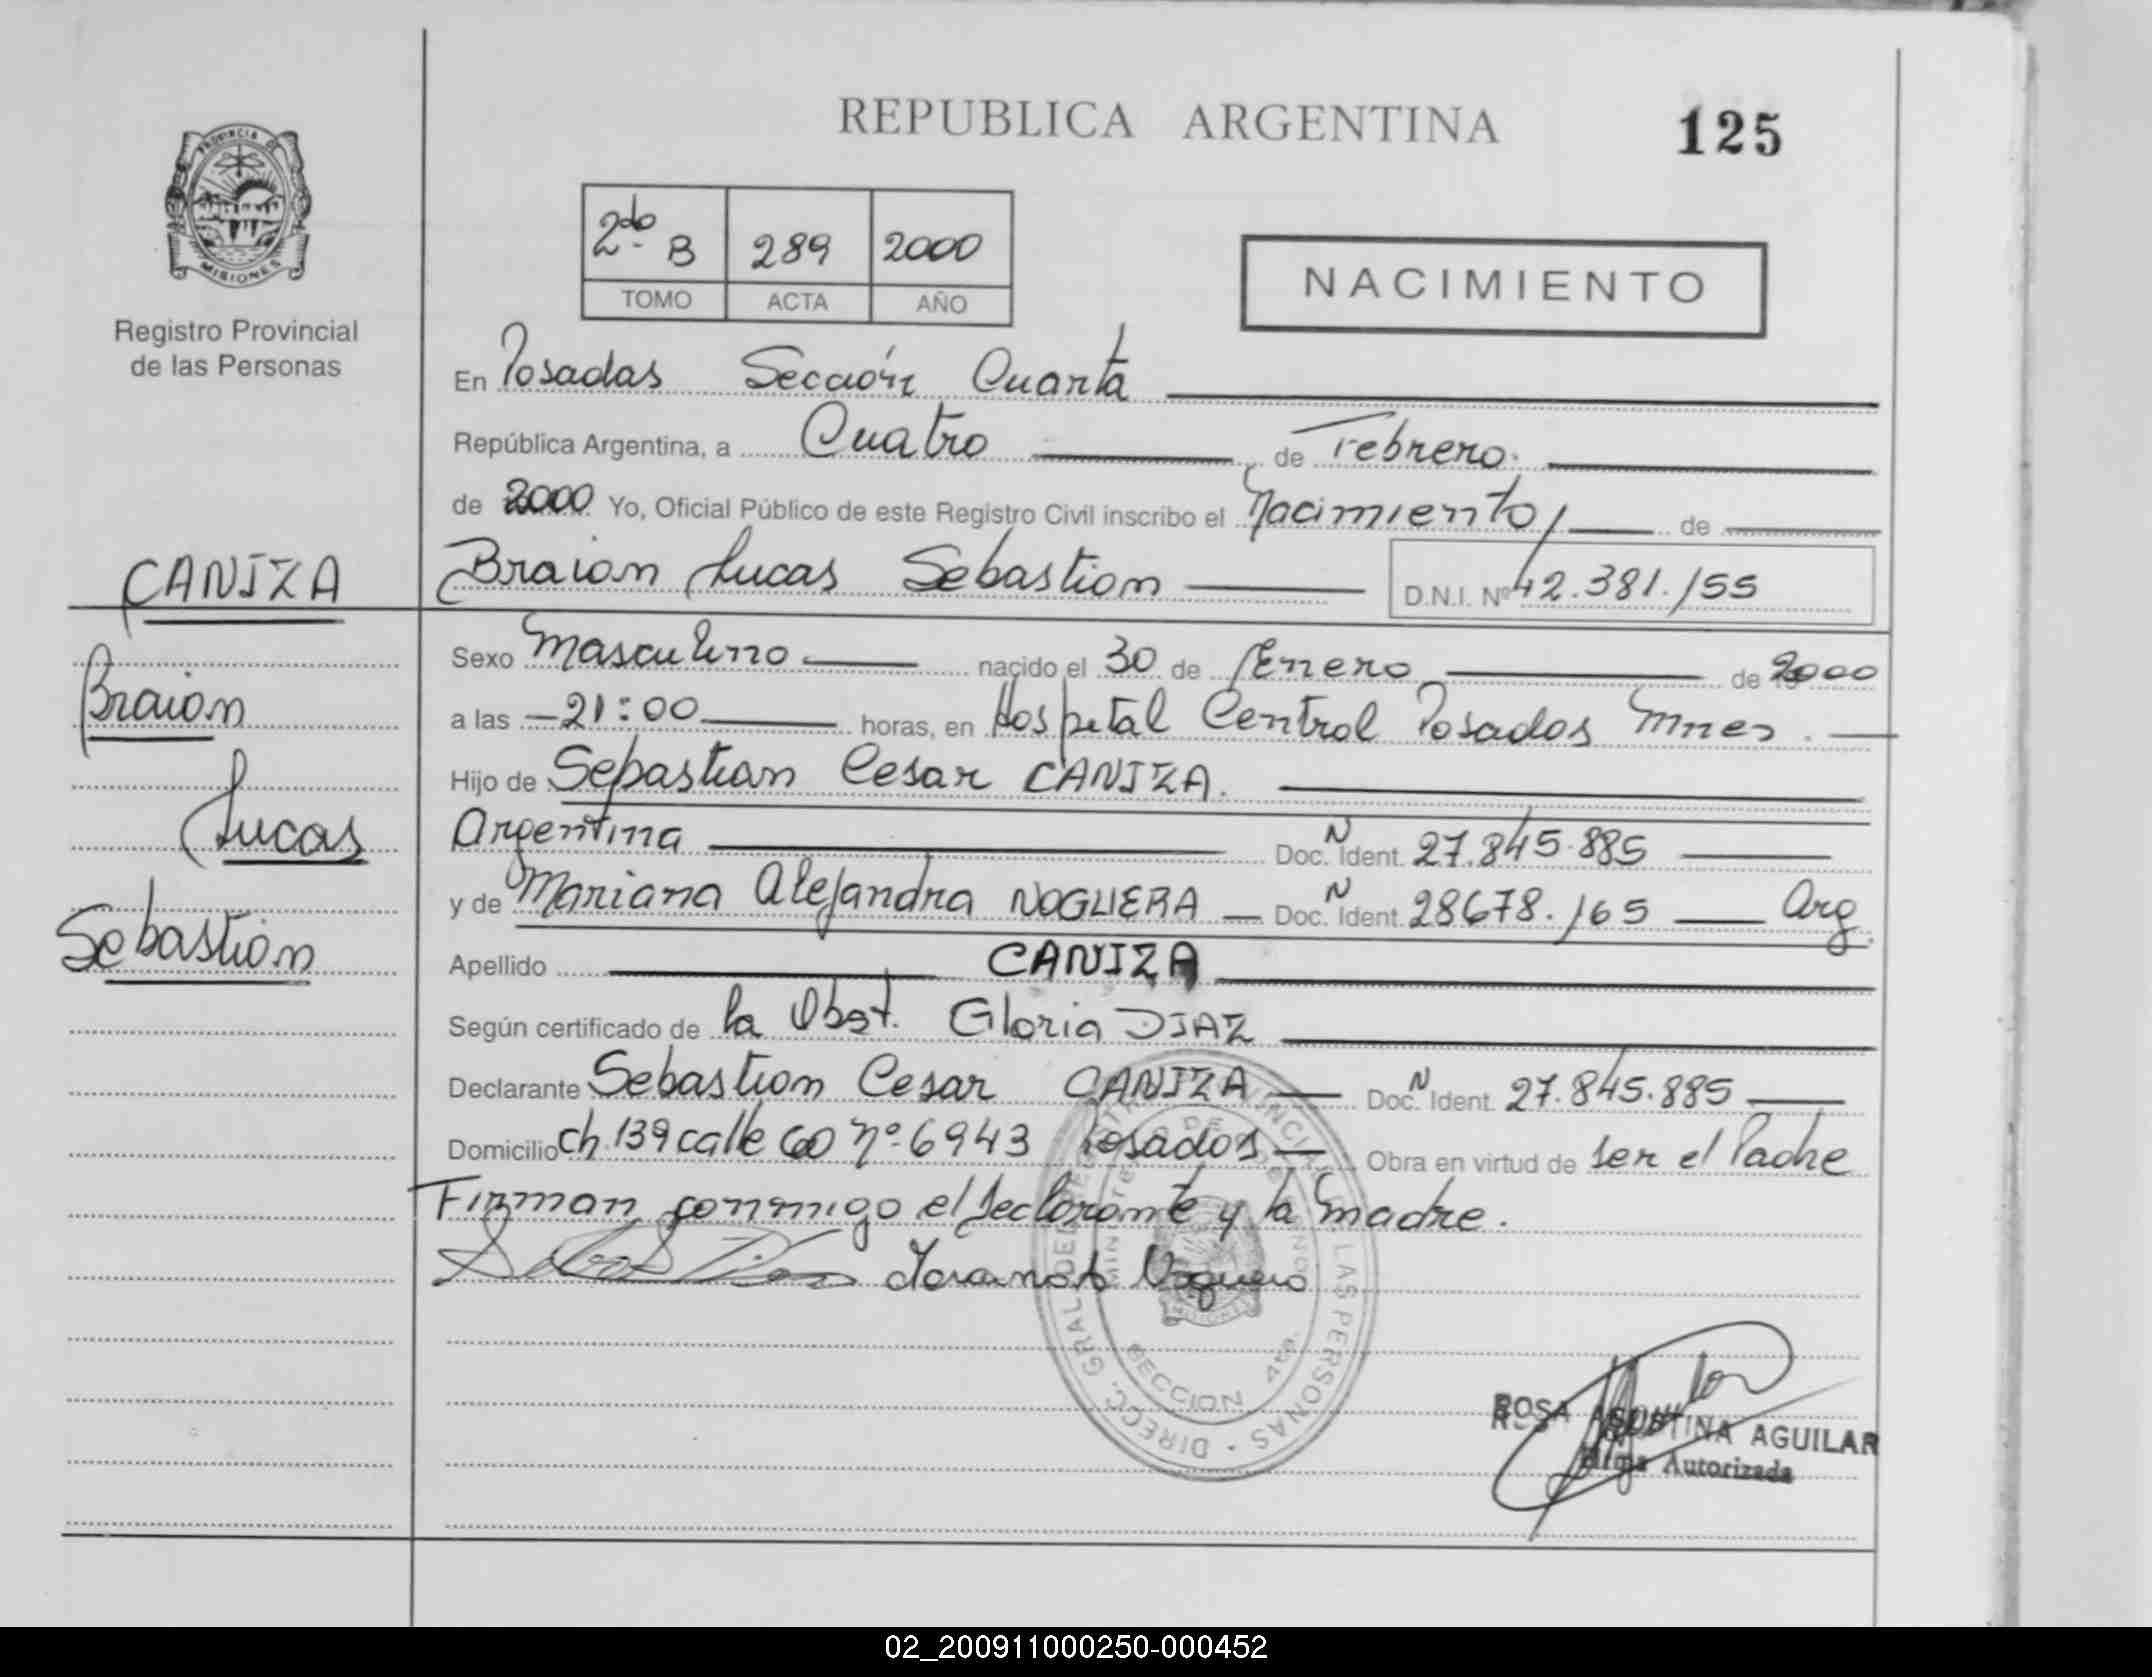 REPUBLICA ARGENTINA
125
PROVINCIA DE
MISIONES
Registro Provincial
de las Personas
2do B 289 2000
TOMO ACTA AÑO
NACIMIENTO
En Posadas Sección Cuarta
República Argentina, a Cuatro de Febrero.
de 2000 Yo, Oficial Público de este Registro Civil inscribo el Nacimiento de
CANIZA
Braian Lucas Sebastian D.N.I. Nº 42.381.155
Sexo Masculino nacido el 30 de Enero de 2000
Braian
a las 21:00 horas, en Hospital Central Posadas Mnes.
Hijo de Sebastian Cesar CANIZA.
Lucas
Argentina Doc. N Ident. 27.845.885
y de Mariana Alejandra NOGUERA Doc. N Ident. 28678.165 Arg
Sebastian
Apellido CANIZA
Según certificado de la Obst. Gloria DIAZ
Declarante Sebastian Cesar CANIZA Doc. N Ident. 27.845.885
Domicilio ch.139 calle 60 nº 6943 Posadas Obra en virtud de ser el Padre
Firman conmigo el declarante y la madre.
Noguera
DIRECC. GRAL. DE LAS PERSONAS
SECCION 4ta.
ROSA AGUSTINA AGUILAR
Firma Autorizada
02_200911000250-000452